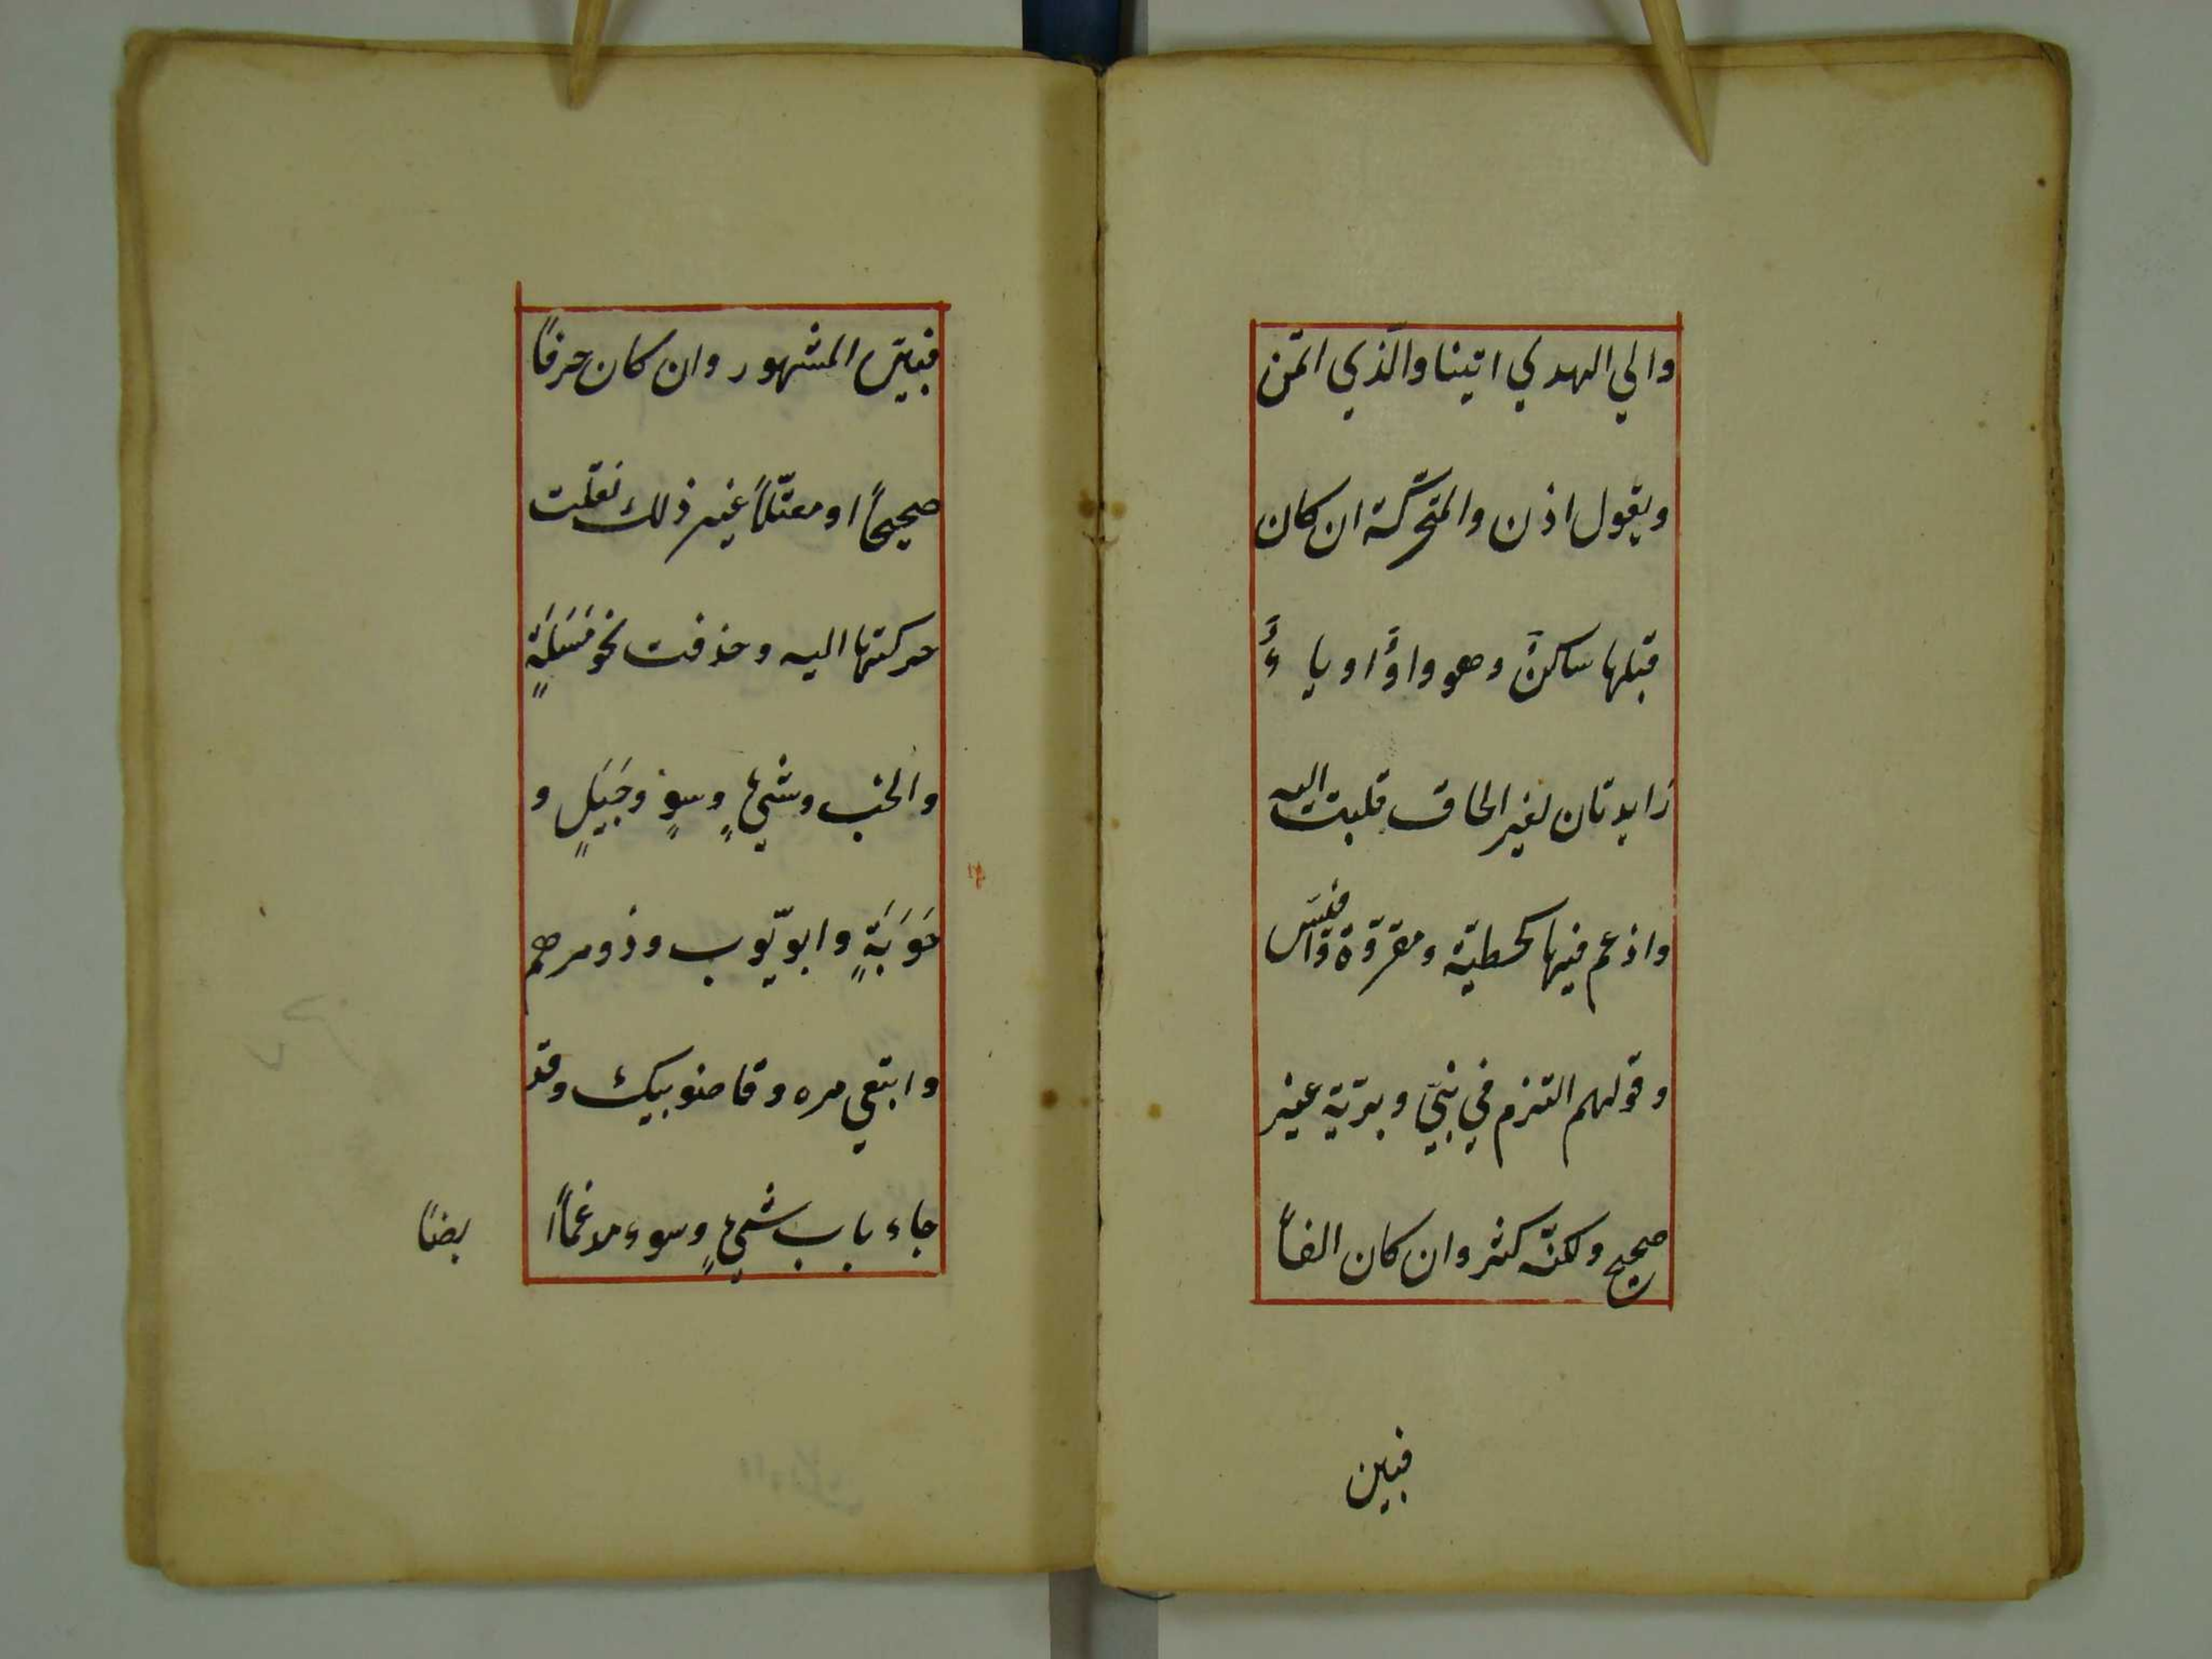 والي الهدي اتينا والّذي اتمن
ويقول اذن والمتحرّكة ان كان
قبلها ساكن وهو واوٌ او ياءٌ
زايدتان لغير الحاق قلبت اليه
وادغم فيها كخطيّة ومقروّة وافيّس
وقولهم التزم في نبيّ وبريّة غير
صحيح ولكنّه كثر وان كان الفاً
فبين
فبين المشهور وان كان حرفاً
صحيحاً او معتلّاً غير ذلك نقلت
حركتها اليه وحذفت نحو مَسَلَةٍ
والخب وشيءٍ وسوٍ وجَيَلٍ و
حَوَبَةٍ وابو يّوب وذو مرهم
وابتغي مره وقاضو بيك وقد
جاء باب شيءٍ وسوء مدغماً ا
يضاً